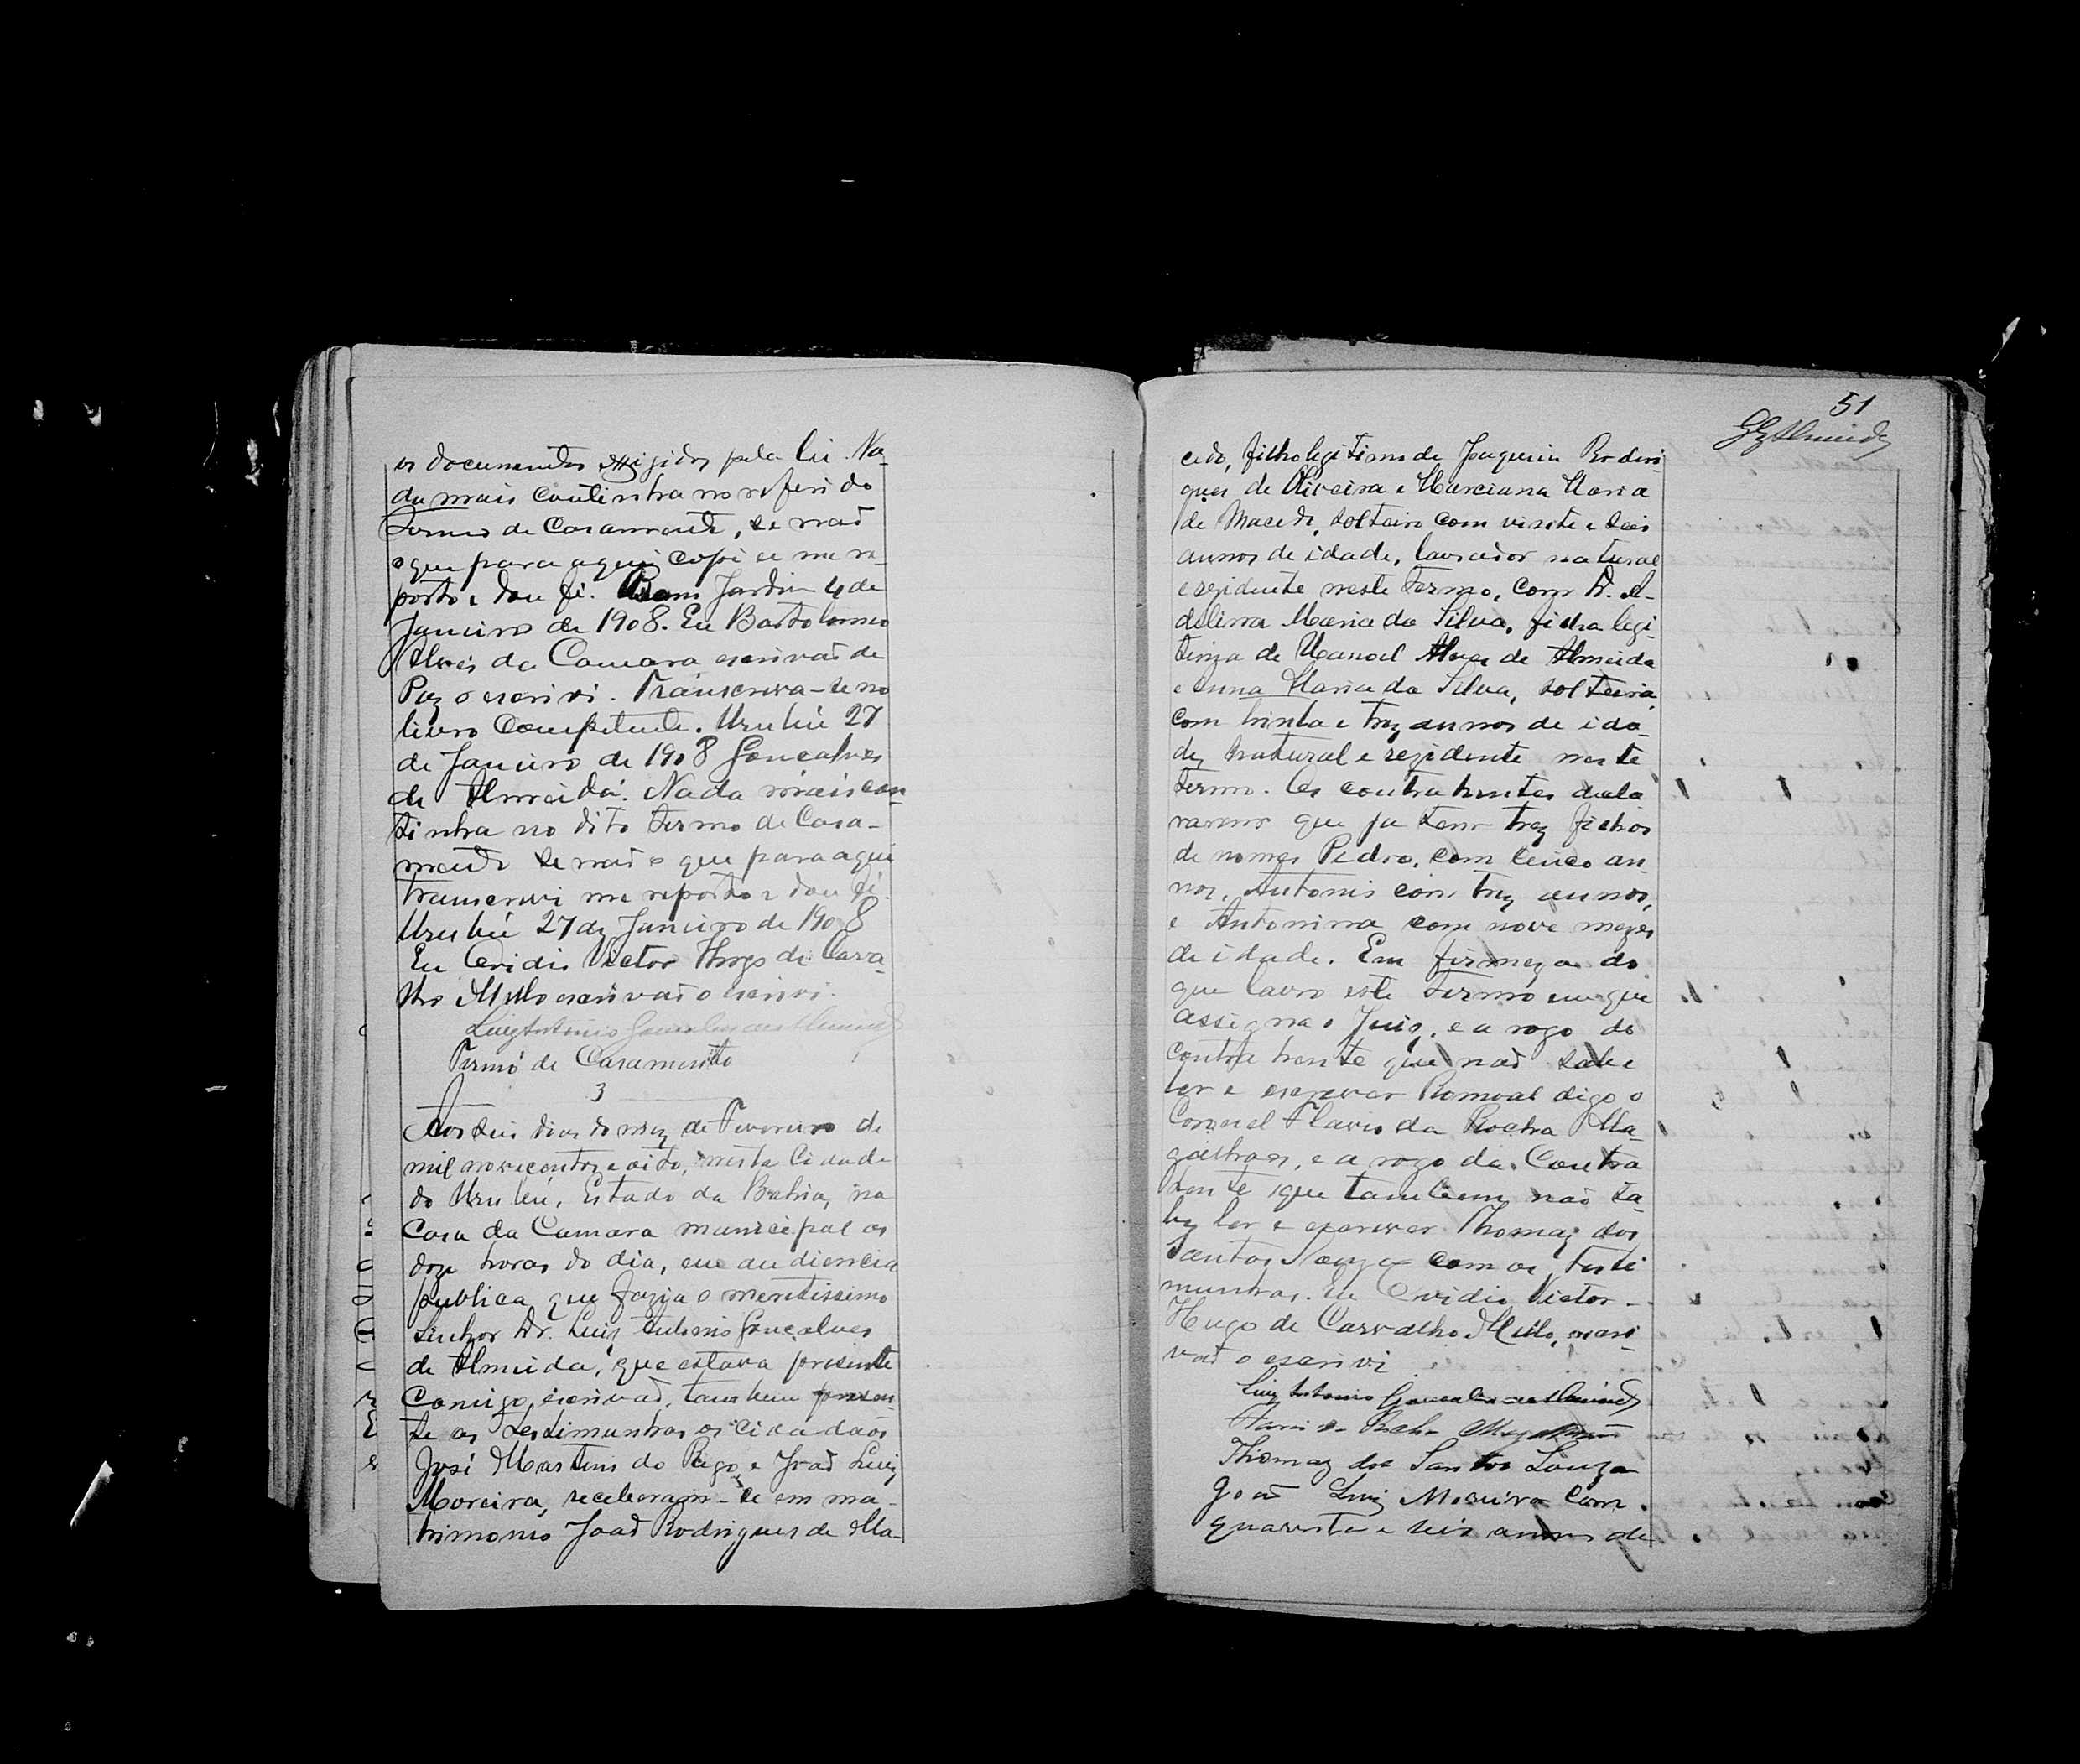 os documentos exigidos pela lei. Na-
da mais continha no referido
termo de Casamento, se naõ
o que para aqui copiei me re-
porto e dou fé. Bom Jardim 4 de
Janeiro de 1908. Eu Bartolomeo
Alves da Camara escrivaõ de
Paz o escrivi. Transcreva-se no
livro Competente. Urubú 27
de Janeiro de 1908 Gonçalves
de Almeida. Nada mais con-
tinha no dito termo de Casa-
mento se naõ o que para aqui
transcrevi me reporto e dou fé.
Urubú 27 de Janeiro de 1908
Eu Ovidio Victor Hugo de Carva-
lho Mello escrivaõ o escrivi.
Luiz Antonio Gonçalves de Almeida
Termo de Casamento
3
Aos seis dias do mez de Fevereiro de
mil novecentos e oito, nesta Cidade
do Urubú, Estado da Bahia, na
Casa da Camara municipal as
doze horas do dia, em audiencia
publica que fazia o meretissimo
Senhor Dr. Luiz Antonio Gonçalves
de Almeida, que estava presente
Comigo escrivaõ, tambem presen-
te as testimunhas os cidadaõs
José Martins do Rego e Joaõ Luiz
Moreira, receberam-se em ma-
trimonio Joaõ Rodrigues de Ma-
51
GAlmeida
cedo, filho legitimo de Joaquim Rodri
gues de Oliveira e Marciana Maria
de Macedo, solteiro com vinte e seis
annos de idade, lavrador natural
e rezidente neste termo, com D. A-
delina Maria da Silva, filha legi-
tima de Manoel Alves de Almeida
e Anna Maria da Silva, solteira,
com trinta e trez annos de ida-
de, natural e rezidente neste
termo. Os contrahentes decla
raram que ja tem trez filhos
de nomes Pedro, com cinco an-
nos, Antonio com trez annos,
e Antonina com nove mezes
de idade. Em firmeza do
que lavro este termo em que
assigna o Juiz, e a rogo do
Contrahente que naõ sabe
ler e escrever Romoal digo o
Coronel Flavio da Rocha Ma-
galhaes, e a rogo da Contra
hente que tambem naõ sa-
be ler e escrever Thomaz dos
Santos Souza com as testi
munhas. Eu Ovidio Victor
Hugo de Carvalho Mello, escri
vaõ o escrivi
Luiz Antonio Gonçalves de Almeida
Flavio da Rocha Magalhães
Thomaz dos Santos Souza
Joaõ Luiz Moreira Com
quarenta e seis annos de